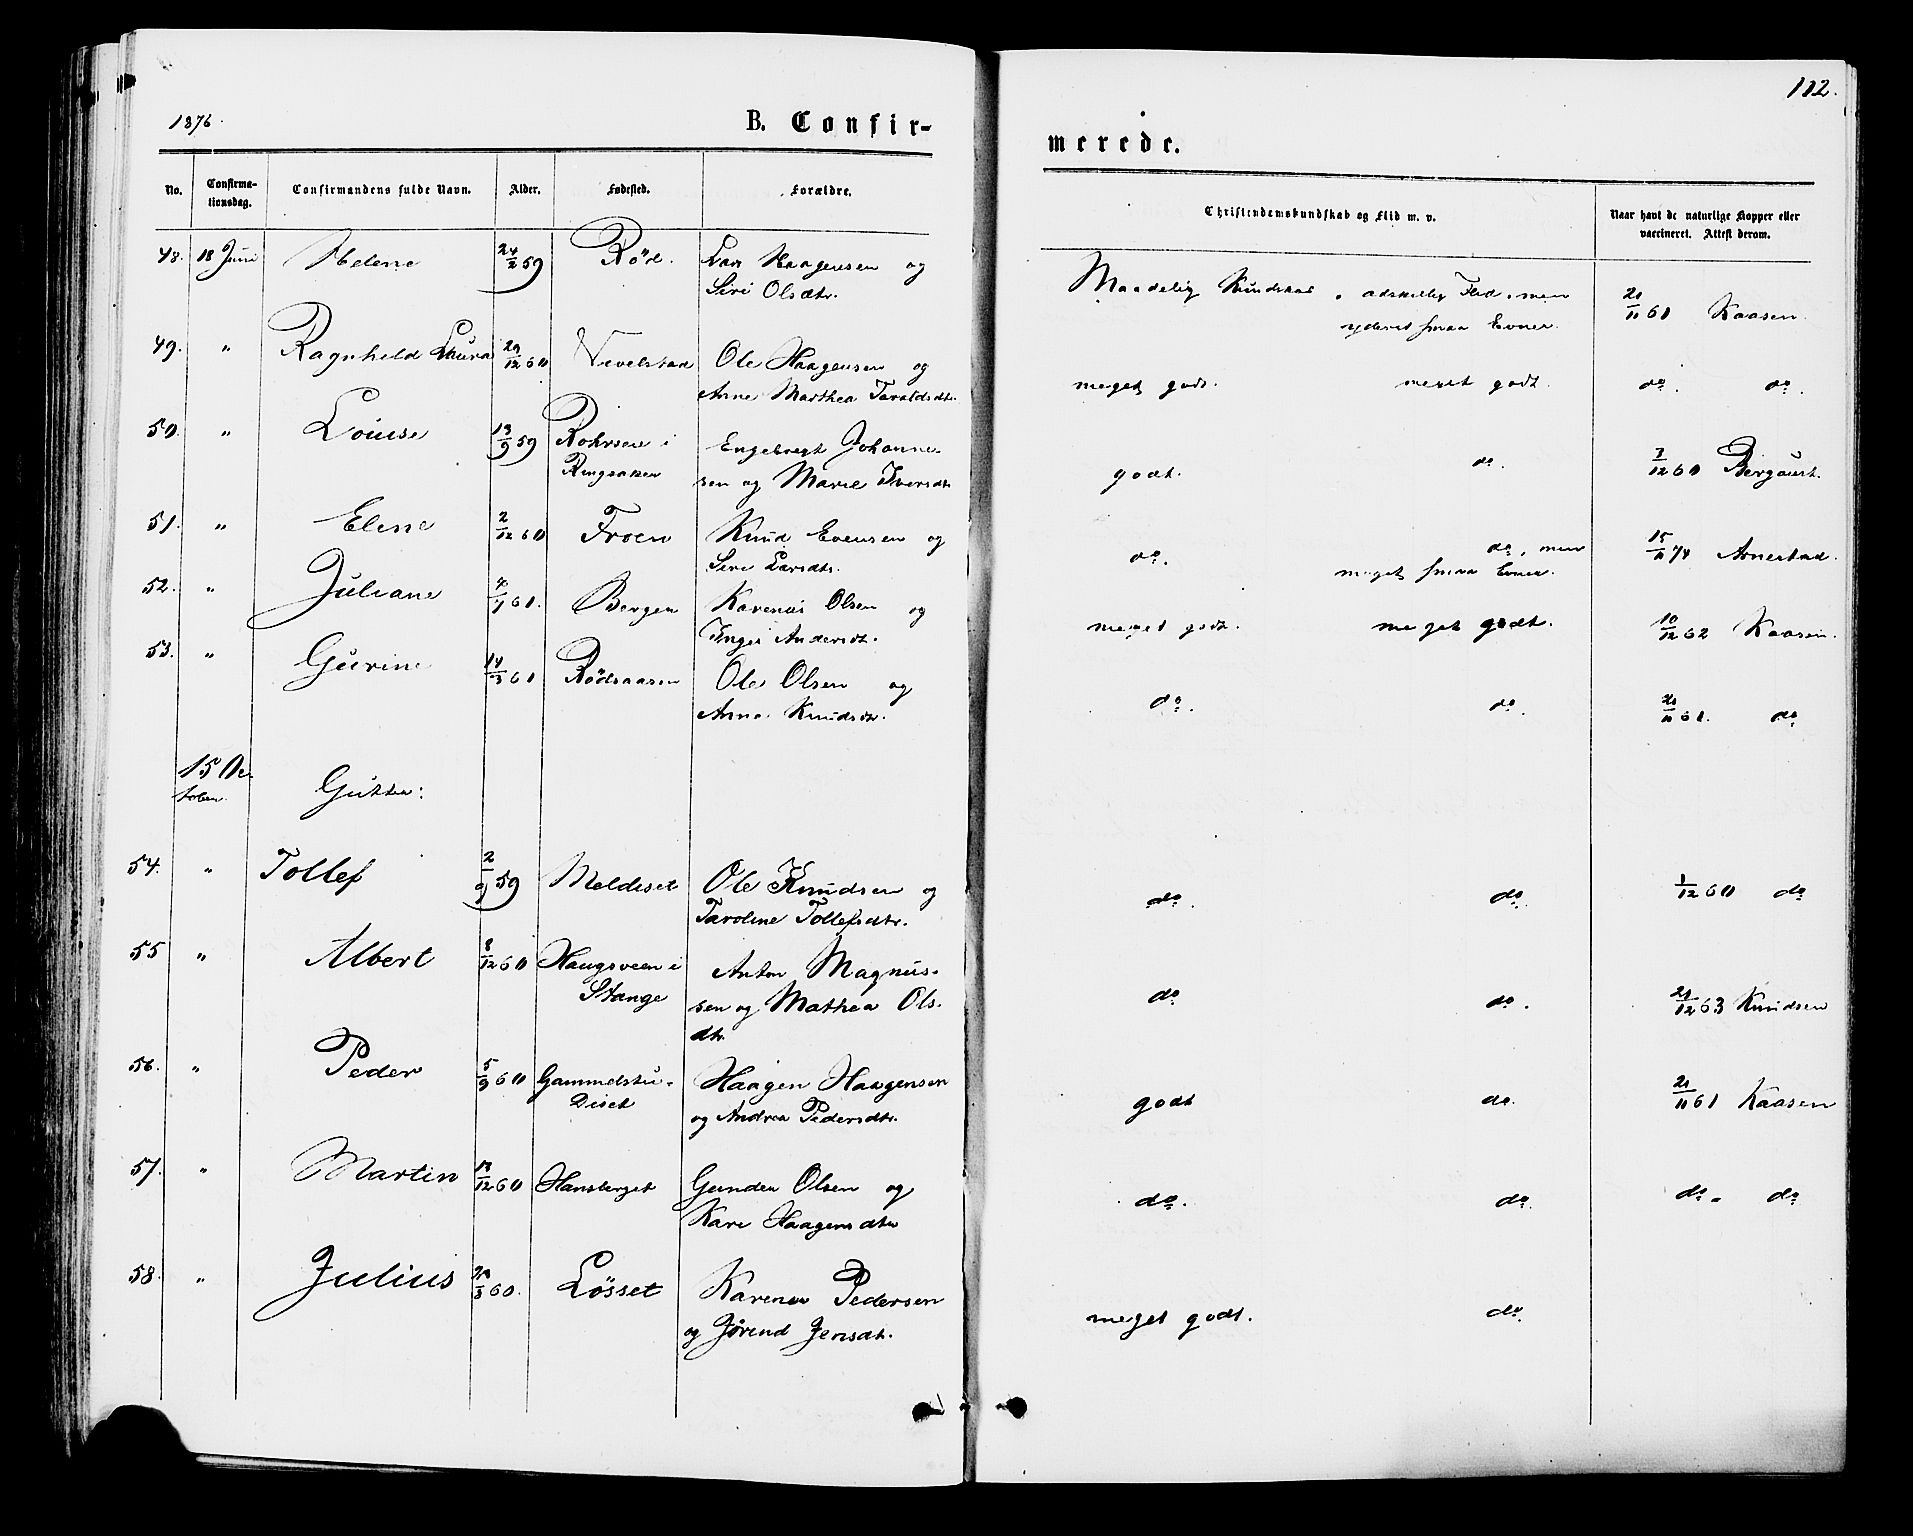 112.
1876.
B. Confir-
merede.
No.
Confirma-
tionsdag.
Confirmandens fulde Navn.
Alder.
Fødested.
Forældre.
Christendomskundskab og Flid m. v.
Naar havt de naturlige Kopper eller
vaccineret. Attest derom.
48. 18 Juni Helene 24/2 59 Röd. Lars Haagensen og
Siri Olsdtr.
Maadelig Kundskab, adskillig Flid, men
yderst smaa Evner.
21/11 61 Kaasen.
49. " Ragnhild Laura 29/12 60 Nevelstad Ole Haagensen og
Anne Marthea Taraldsdtr.
meget godt. meget godt. do. do.
50. " Louise 13/9 59 i
Ringsaker
Engebregt Johanne-
sen og Marie Iversdtr
godt. do. 7/12 60 Bergaust.
51. " Elene 2/12 60 Froen Knud Evensen og
Siri Larsdtr.
do. do, men
meget smaa Evner.
15/11 74 Arnestad.
52. " Juliane 4/1 61. Bergen Karenus Olsen og
Inger Andersdt.
meget godt. meget godt. 10/12 62 Kaasen.
53. " Gurine 14/3 61 Rödsaasen Ole Olsen og
Anne Knudsdtr.
do. do. 21/11 61. do
15 Oc-
tober.
Gutter:
54. " Tollef 2/9 59 Meldiset Ole Knudsen og
Taroline Tollefsdtr.
do. do. 1/12 60 do
55 " Albert 8/12 60 Haugsveen i
Stange
Anton Magnus-
sen og Mathea Ols-
dtr.
do do. 21/12 63 Knudsen
56. " Peder 5/9 60 Gammelstu-
Diset
Haagen Haagensen
og Andrea Pedersdtr.
godt do. 21/11 61 Kaasen
57. " Martin 13/12 60 Hansberget Gunder Olsen og
Kari Haagensdtr
do. do. do. do
58. " Julius /3 60. Lösset Karenus Pedersen
og Jörend Jensdt.
meget godt. do.